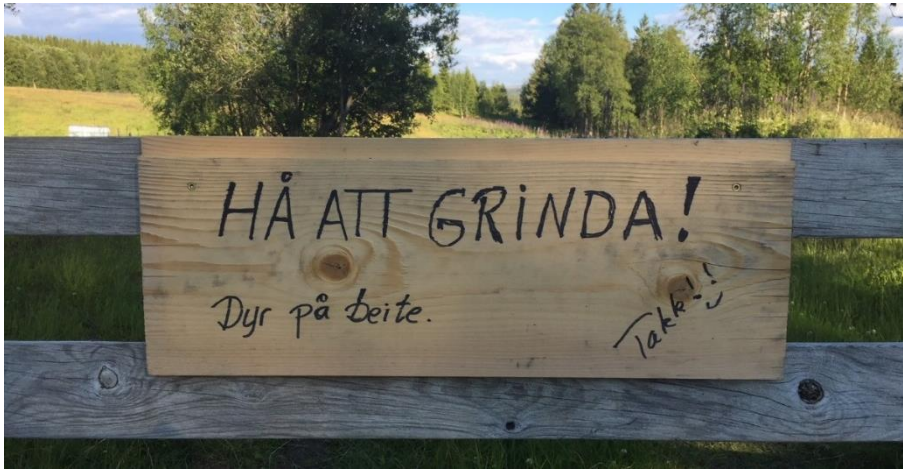 HÅ ATT GRINDA!
Dyr på beite.
Takk!!